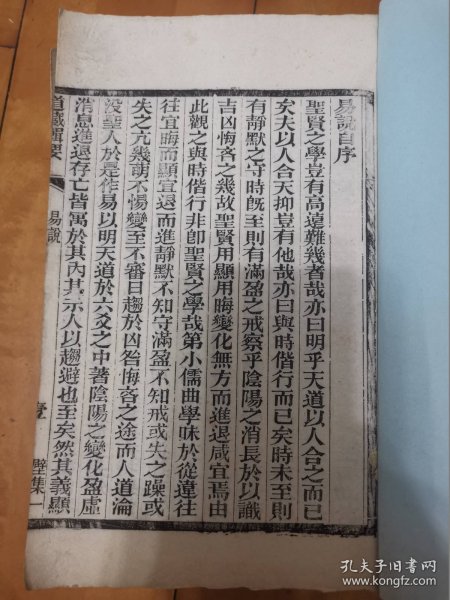 易說自序
聖賢之學豈有高遠難幾者哉亦曰明乎天道以人合之而已
矣夫以人合天抑豈有他哉亦曰與時偕行而已矣時未至則
有靜默之守時旣至則有滿盈之戒察乎陰陽之消長於以識
吉凶悔吝之幾故聖賢用顯用晦變化無方而進退咸宜焉由
此觀之與時偕行非卽聖賢之學哉第小儒曲學昧於從違往
往宜晦而顯宜退而進靜默不知守滿盈不知戒或失之躁或
失之亢幾萌不惕變至不審日趨於凶咎悔吝之途而人道淪
没聖人於是作易以明天道於六爻之中著陰陽之變化盈虛
消息進退存亡皆寓於其內其示人以趨避也至矣然其義顯
道藏輯要
易說
壹
壁集一
孔夫子旧书网
www.kongfz.com